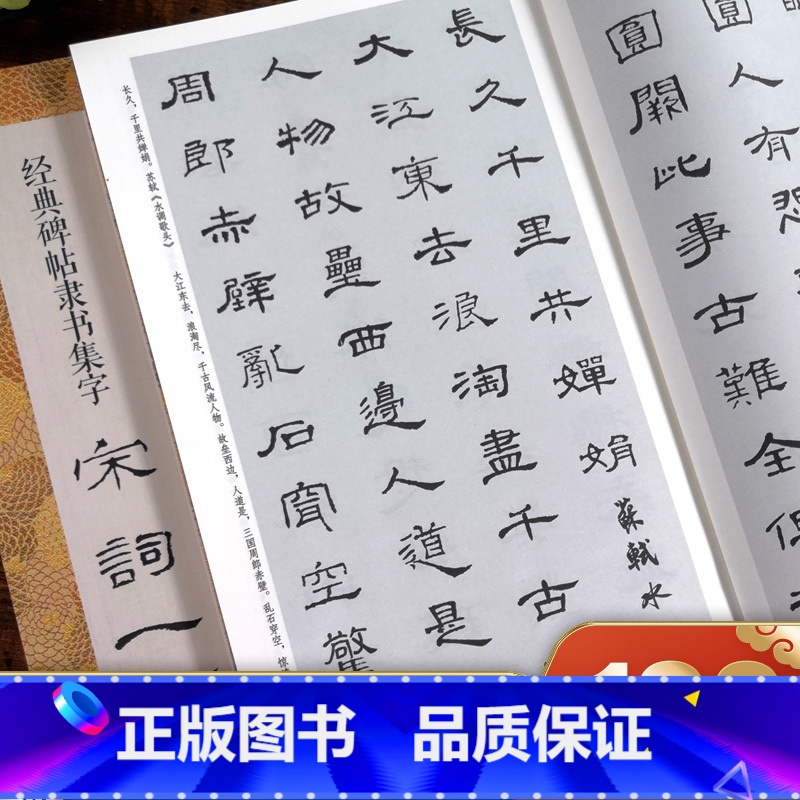 圓人有悲
圓闕此事古難全但
長久千里共嬋娟 蘇軾水
大江東去浪淘盡千古
人物故壘西邊人道是
周郎赤壁亂石穿空驚
长久，千里共婵娟。苏轼《水调歌头》 大江东去，浪淘尽，千古风流人物。故垒西边，人道是，三国周郎赤壁。乱石穿空，惊
经典碑帖隶书集字
宋詞一
正版图书 品质保证